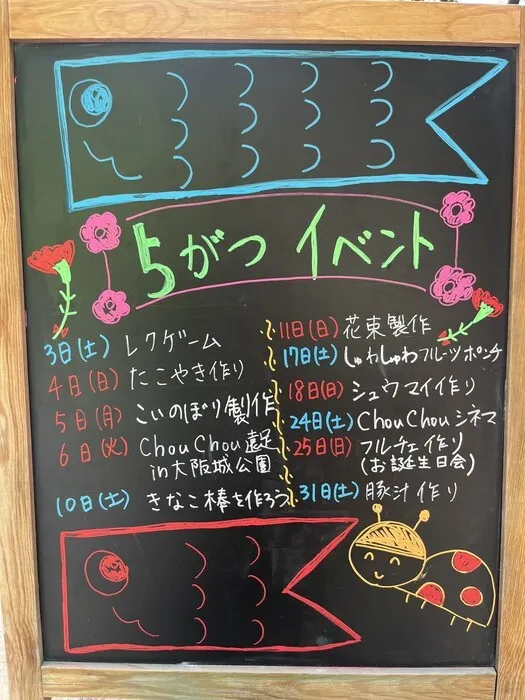 5がつ イベント
3日(土) レクゲーム
4日(日) たこやき作り
5日(月) こいのぼり製作
6日(火) ChouChou遠足
in大阪城公園
10日(土) きなこ棒を作ろう
11日(日) 花束製作
17日(土) しゅわしゅわフルーツポンチ
18日(日) シュウマイ作り
24日(土) ChouChouシネマ
25日(日) フルーチェ作り
(お誕生日会)
31日(土) 豚汁作り